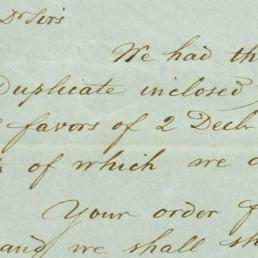 Dr Sirs
We had th
Duplicate inclosed
favors of 2 Decbr
of which we
Your order f
and we shall sh